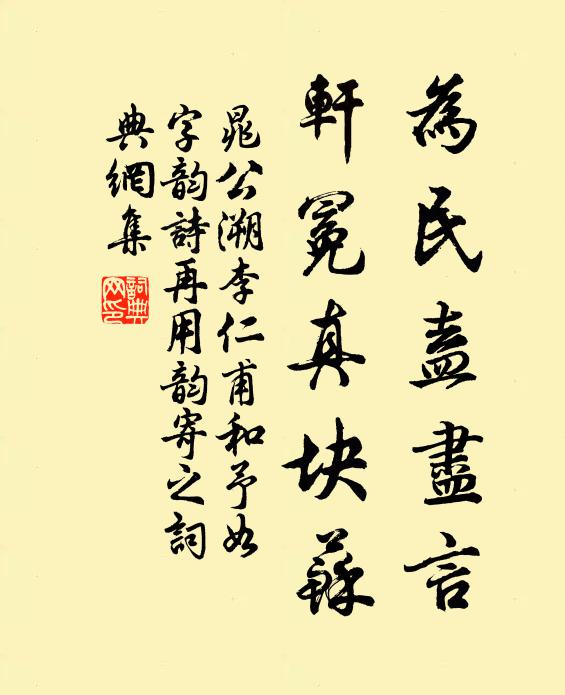 為民盍盡言
軒冕真块蘇
晁公溯李仁甫和予如
字韵詩再用韵寄之詞
典網集
詞典網印